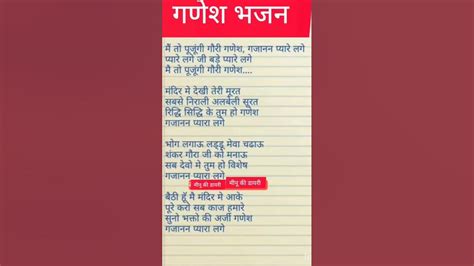 गणेश भजन
मैं तो पूजूंगी गौरी गणेश, गजानन प्यारे लगे
प्यारे लगे जी बड़े प्यारे लगे
मै तो पूजूंगी गौरी गणेश....
मंदिर मे देखी तेरी मूरत
सबसे निराली अलबेली सूरत
रिद्धि सिद्धि के तुम हो गणेश
गजानन प्यारा लगे
भोग लगाऊ लड्डू मेवा चढाऊ
शंकर गौरा जी को मनाऊ
सब देवो मे तुम हो विशेष
गजानन प्यारा लगे
मीनू की डायरी मीनू की डायरी
बैठी हूँ मै मंदिर मे आके
पूरे करो सब काज हमारे
सुनो भक्तो की अर्जी गणेश
गजानन प्यारा लगे